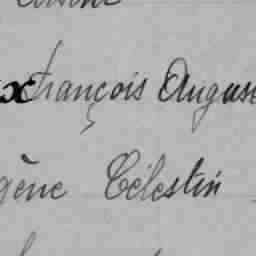 François Augus
gène Célestin